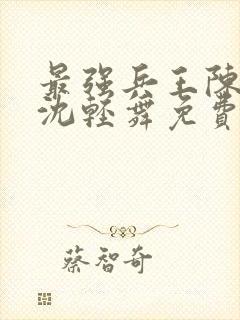 最强兵王陳
沈輕舞免費
蔡智奇